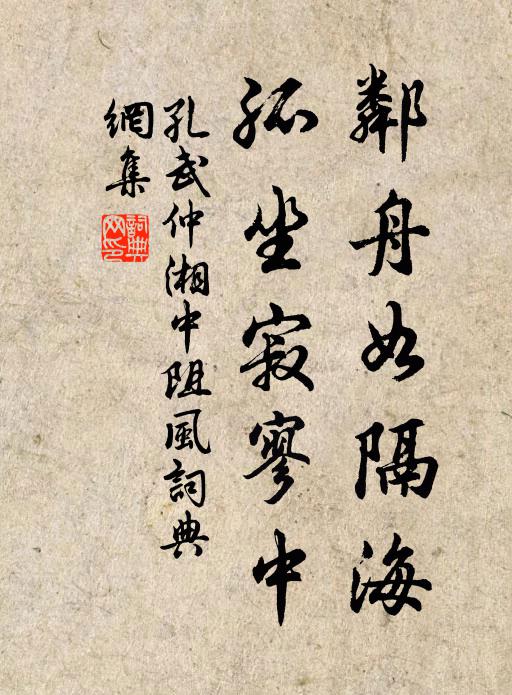 鄰舟如隔海
孤坐寂寥中
孔武仲湘中阻風詞典
網集
詞典網印